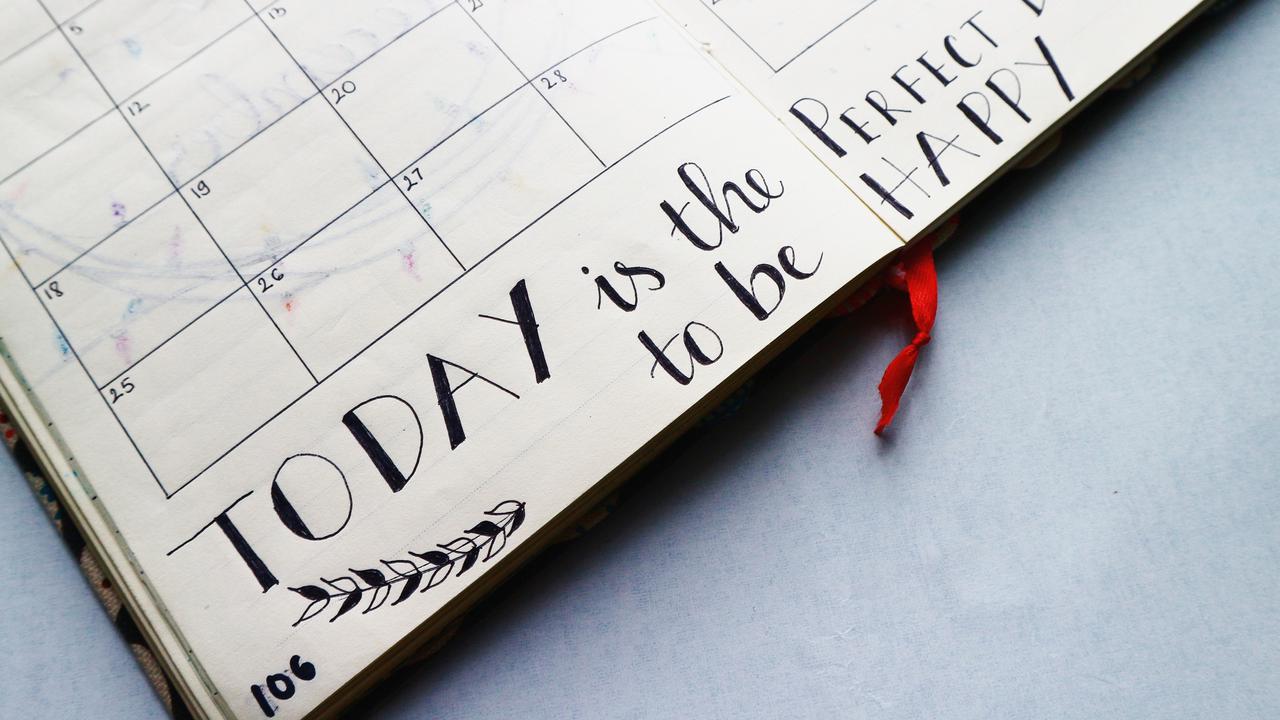 5
12 13
18 19 20 21
25 26 27 28
TODAY is the PERFECT
to be HAPPY
106